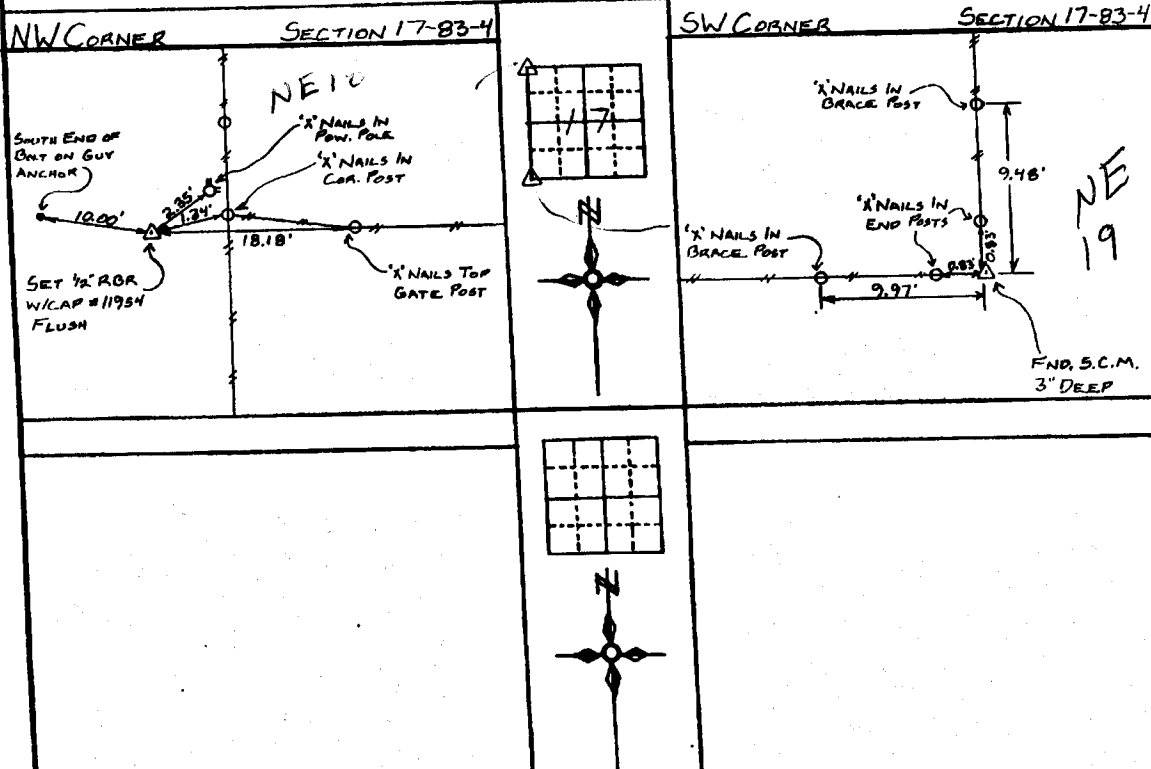 NW CORNER SECTION 17-83-4
NE 18
SOUTH END OF
BOLT ON GUY
ANCHOR
"X" NAILS IN
POW. POLE
"X" NAILS IN
COR. POST
2.35'
1.24'
10.00'
18.18'
SET 1/2" RBR
W/CAP #11954
FLUSH
"X" NAILS TOP
GATE POST
17
N
SW CORNER SECTION 17-83-4
"X" NAILS IN
BRACE POST
9.48'
NE
19
"X" NAILS IN
END POSTS
"X" NAILS IN
BRACE POST
0.83'
0.83'
9.97'
FND. S.C.M.
3" DEEP
N